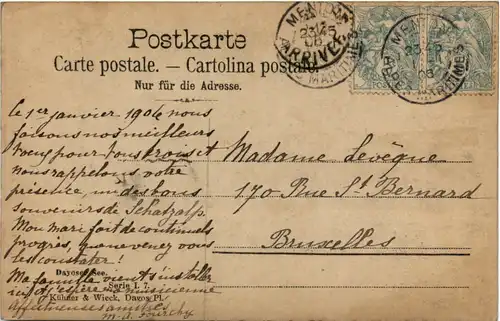 Postkarte
Carte postale. — Cartolina postale.
Nur für die Adresse.
MENTON
ARRIVÉE
MENTON
ALPES MARITIMES
le 1er janvier 1906 nous
faisons nos meilleurs
voeux pour vous trois et
nous rappelons votre
présence un des bons
souvenirs de Schatzalp.
Mon mari fait de continuels
progrès, que ne venez vous
les constater!
Ma famille vient s'installer
j'espère musicienne
affectueuses amitiés
Madame Levêque
170 Rue St Bernard
Bruxelles
Davoser See.
Serie I. 7.
Kühner & Wieck, Davos Pl.